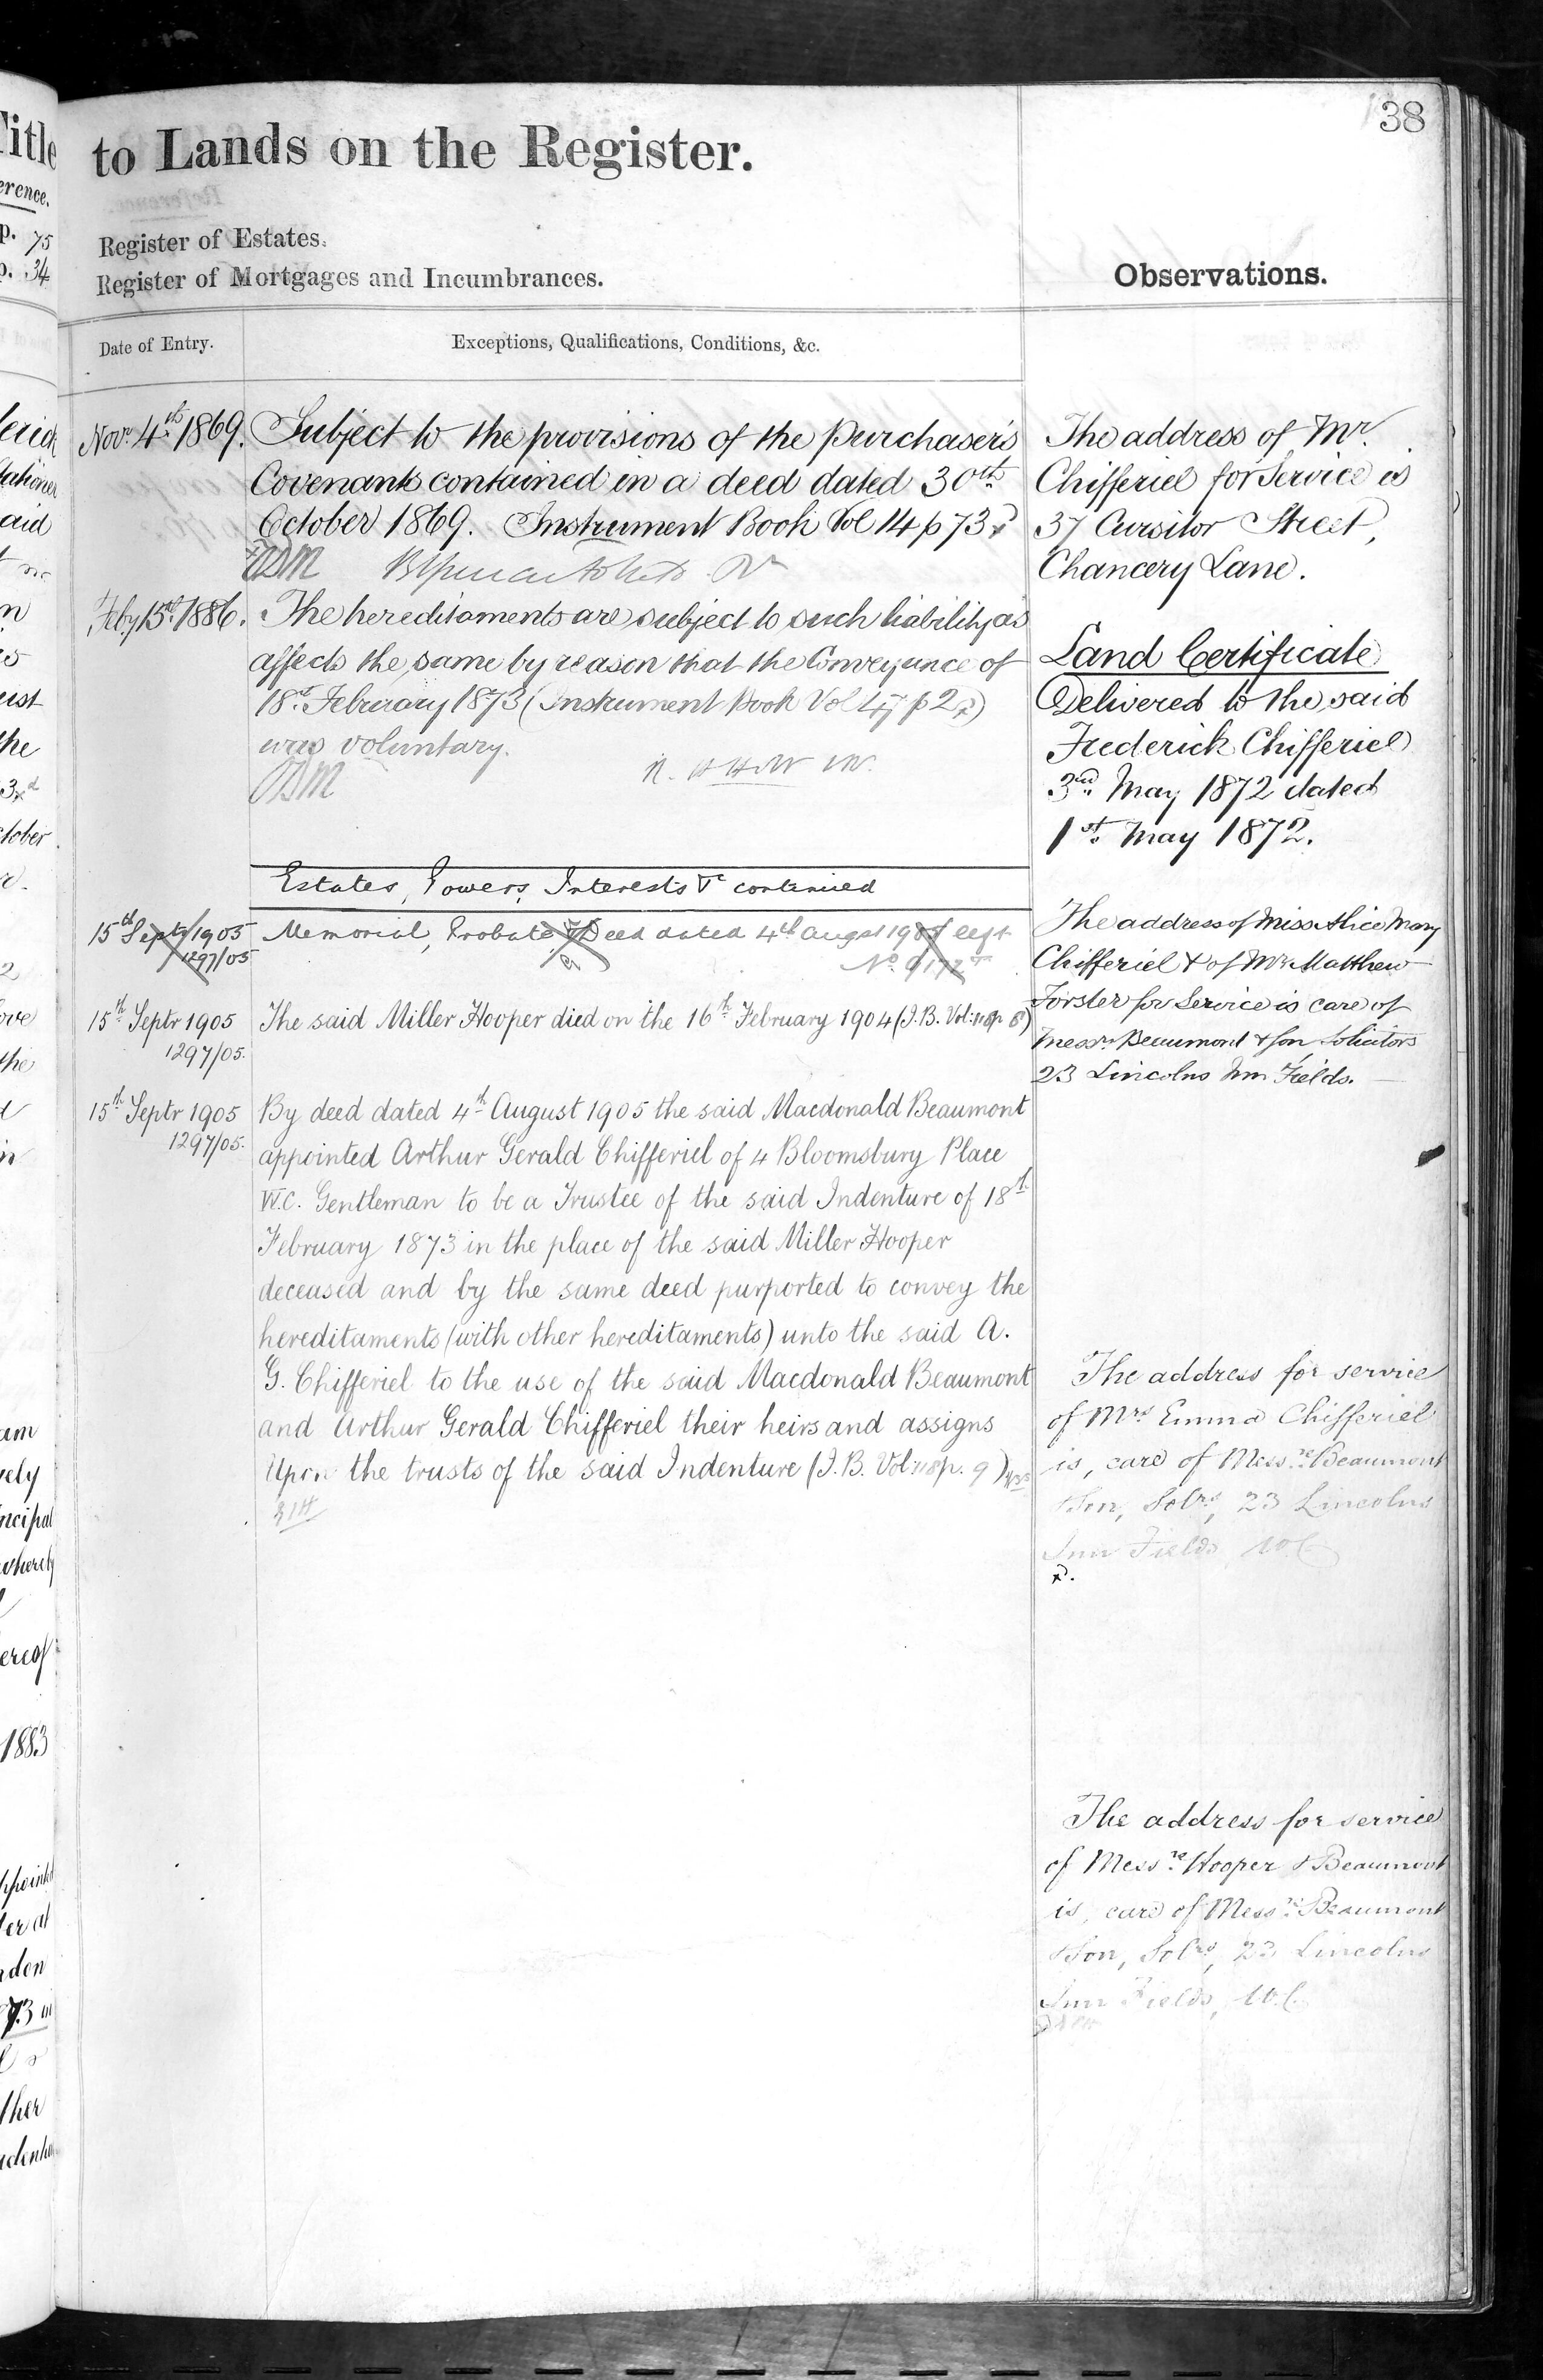 38
to Lands on the Register.
Register of Estates.
Register of Mortgages and Incumbrances.
Observations.
Date of Entry.
Exceptions, Qualifications, Conditions, &c.
Novr. 4th 1869.
Subject to the provisions of the Purchaser's
Covenants contained in a deed dated 30th
October 1869. Instrument Book Vol 14 p 73
Feby 15th 1886.
The hereditaments are subject to such liability as
affects the same by reason that the Conveyance of
18th February 1873 (Instrument Book Vol 47 p 2)
was voluntary.
Estates, Powers, Interests &c continued
15th Septr 1905
1297/05
Memorial, Probate & Deed dated 4th Augst 1905 kept
No. 9172
15th Septr 1905
1297/05.
The said Miller Hooper died on the 16th February 1904 (I.B. Vol: 118 p 8)
15th Septr 1905
1297/05.
By deed dated 4th August 1905 the said Macdonald Beaumont
appointed Arthur Gerald Chifferiel of 4 Bloomsbury Place
W.C. Gentleman to be a Trustee of the said Indenture of 18th
February 1873 in the place of the said Miller Hooper
deceased and by the same deed purported to convey the
hereditaments (with other hereditaments) unto the said A.
G. Chifferiel to the use of the said Macdonald Beaumont
and Arthur Gerald Chifferiel their heirs and assigns
Upon the trusts of the said Indenture (I.B. Vol: 118 p. 9)
The address of Mr.
Chifferiel for Service is
37 Cursitor Street,
Chancery Lane.
Land Certificate
Delivered to the said
Frederick Chifferiel
3rd May 1872 dated
1st May 1872.
The address of Miss Alice Mary
Chifferiel & of Mr. Matthew
Forster for Service is care of
Messrs Beaumont & Son Solicitors
23 Lincolns Inn Fields.
The address for service
of Mrs Emma Chifferiel
is, care of Messrs Beaumont
& Son, Solrs, 23 Lincolns
Inn Fields, W.C.
The address for service
of Messrs Hooper & Beaumont
is, care of Messrs Beaumont
& Son, Solrs, 23 Lincolns
Inn Fields, W.C.